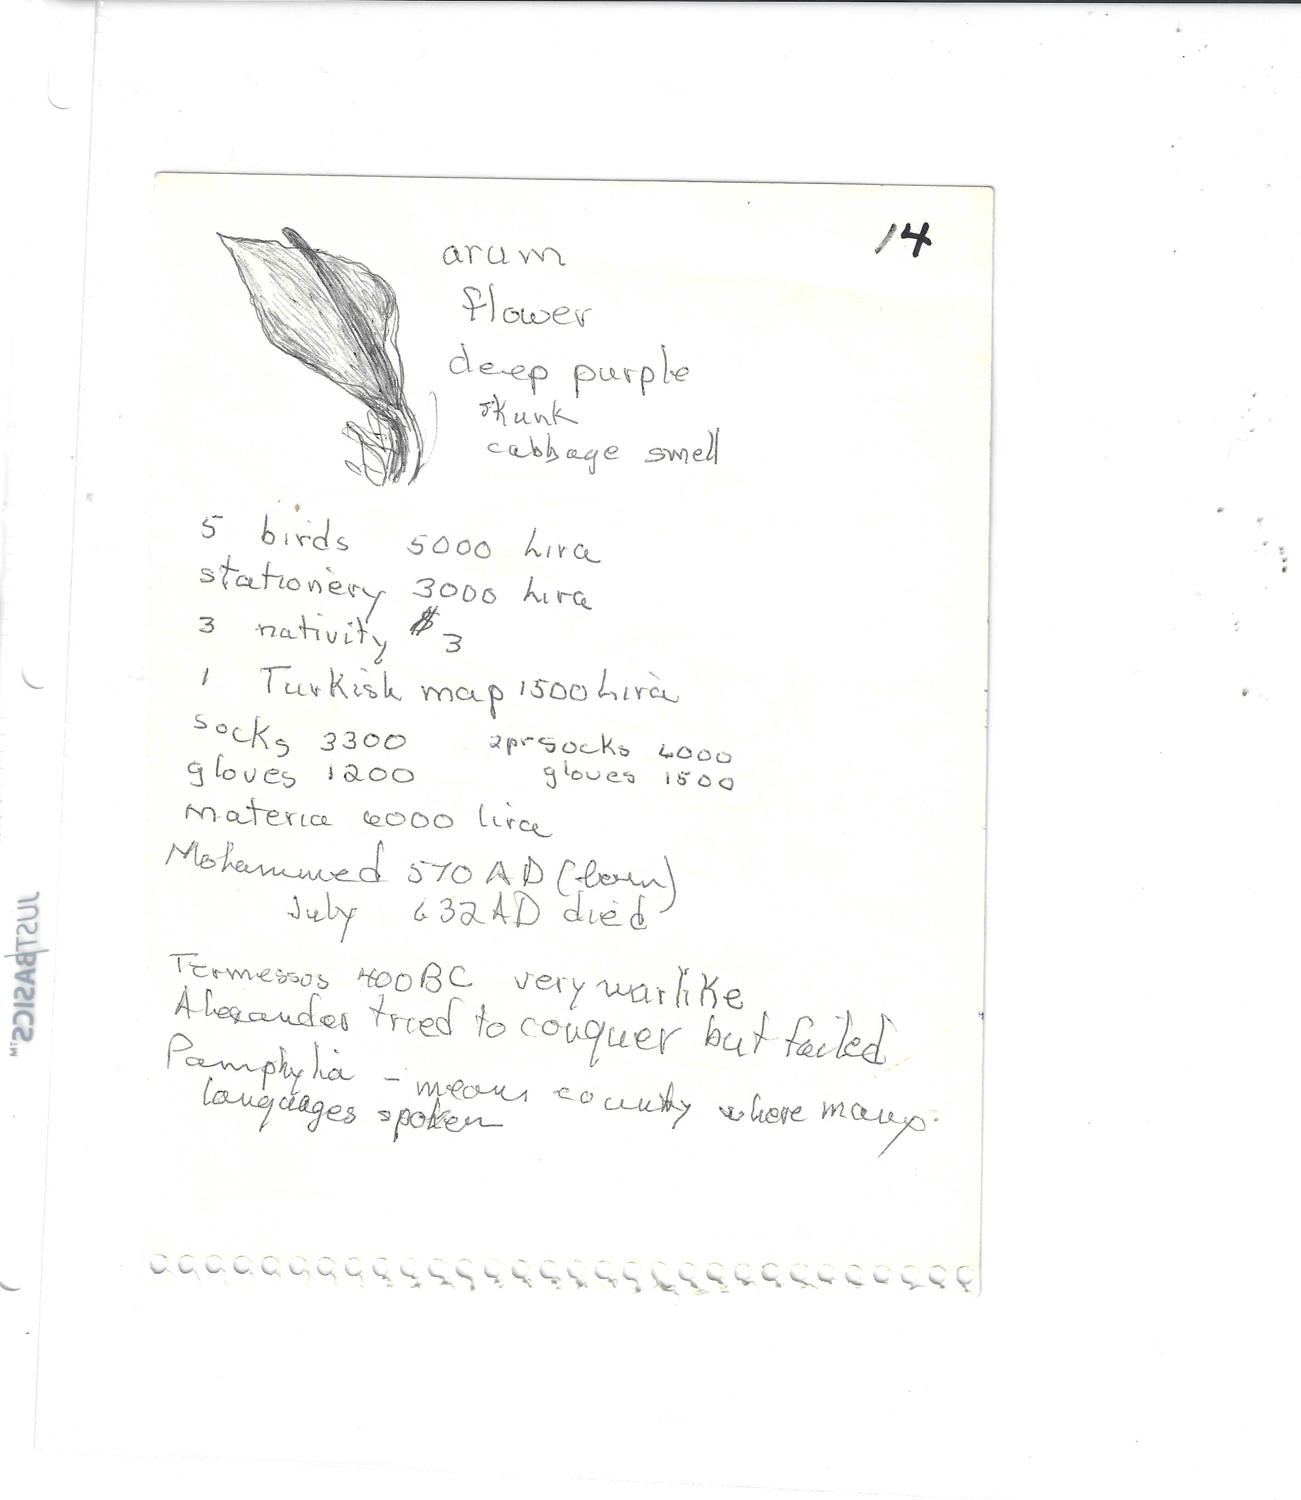 14
arum
flower
deep purple
skunk
cabbage smell
5 birds 5000 lira
stationery 3000 lira
3 nativity $3
1 Turkish map 1500 lira
socks 3300 2pr socks 6000
gloves 1200 gloves 1500
materia 6000 lira
Mohammed 570 AD (born)
July 632 AD died
Termessos 400 BC very warlike
Alexander tried to conquer but failed
Pamphylia - means country where many
languages spoken
JUST BASICS™